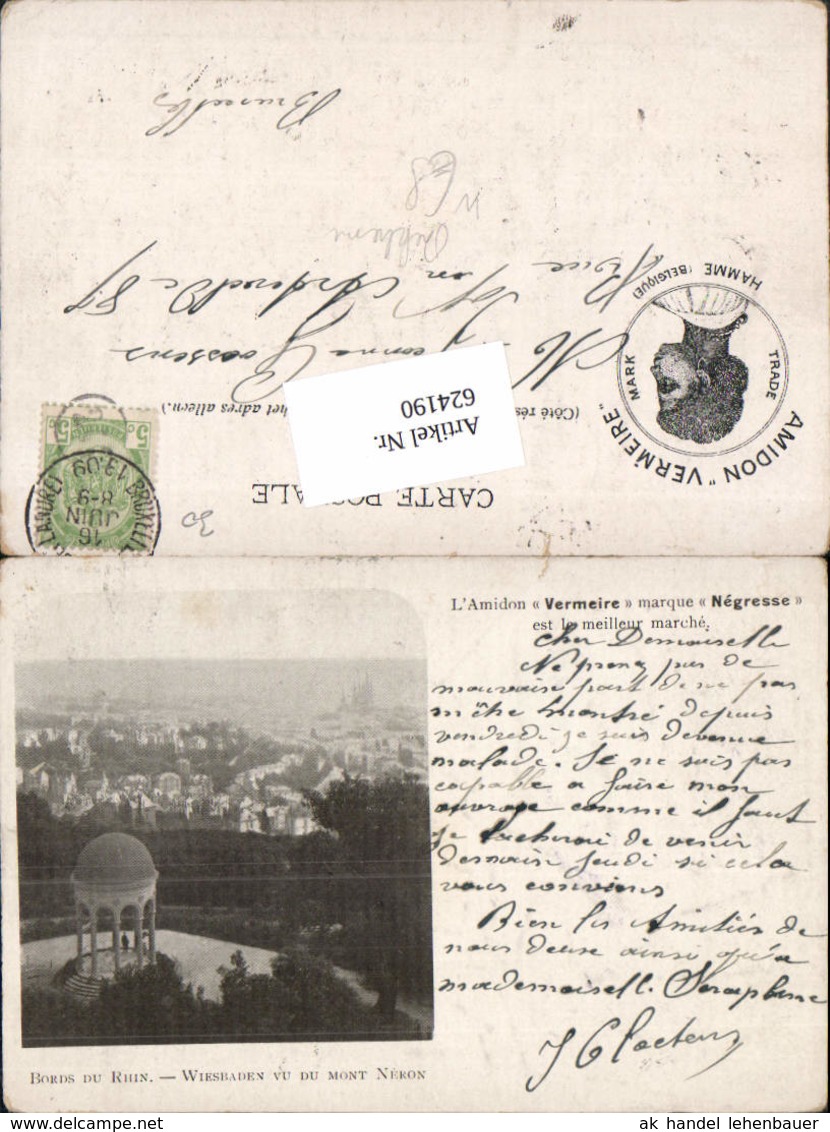 CARTE POSTALE
(Côté rés
het adres alleen.)
Artikel Nr.
624190
AMIDON "VERMEIRE"
TRADE
MARK
HAMME (BELGIQUE)
5 c 5 c
16
JUIN
8-9
13 09
Goossens
Bruxelles
30
L'Amidon « Vermeire » marque « Négresse »
est le meilleur marché.
cher Demoiselle
Ne prenez pas de
mauvaise part de ne pas
m'être montré depuis
vendredi je suis devenue
malade. Je ne suis pas
capable a faire mon
ouvrage comme il faut
je tacherai de venir
demain jeudi si cela
vous conviens
Bien les Amitiés de
nous deux ainsi qu'a
mademoiselle Seraphine
BORDS DU RHIN. — WIESBADEN VU DU MONT NÉRON
ak handel lehenbauer